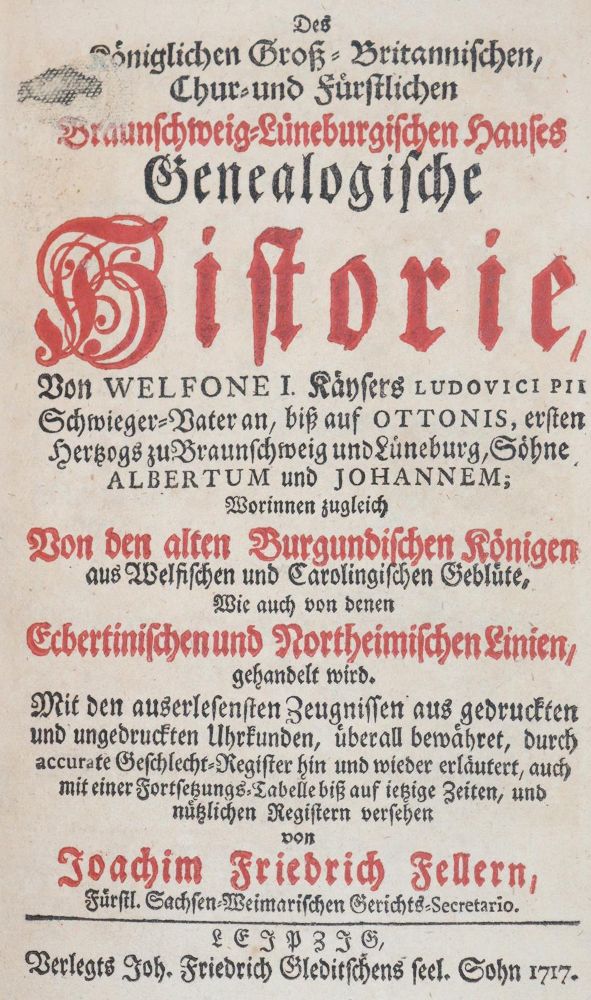 Des
Königlichen Groß-Britannischen,
Chur-und Fürstlichen
Braunschweig-Lüneburgischen Hauses
Genealogische
Historie,
Von WELFONE I. Käysers LUDOVICI PII
Schwieger-Vater an, biß auf OTTONIS, ersten
Hertzogs zu Braunschweig und Lüneburg, Söhne
ALBERTUM und JOHANNEM;
Worinnen zugleich
Von den alten Burgundischen Königen
aus Welfischen und Carolingischen Geblüte,
Wie auch von denen
Ecbertinischen und Northeimischen Linien,
gehandelt wird.
Mit den auserlesensten Zeugnissen aus gedruckten
und ungedruckten Uhrkunden, überall bewähret, durch
accurate Geschlecht-Register hin und wieder erläutert, auch
mit einer Fortsetzungs-Tabelle biß auf ietzige Zeiten, und
nützlichen Registern versehen
von
Joachim Friedrich Fellern,
Fürstl. Sachsen-Weimarischen Gerichts-Secretario.
LEJPZJG,
Verlegts Joh. Friedrich Gleditschens seel. Sohn 1717.